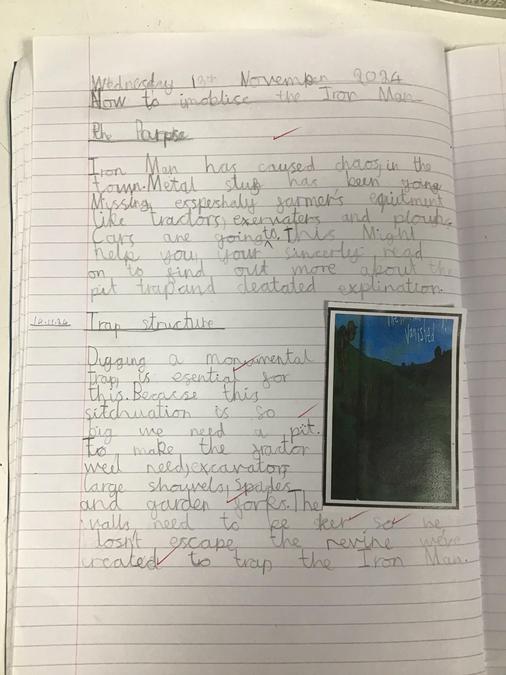 Wednesday 13th November 2024
How to imoblise the Iron Man
the Parpse
Iron Man has caused chaos, in the
town. Metal stuf has been going
Missing, esspeshaly farmer's equitment
like tractors, exervaters and plouhs.
Cars are going to. This Might
help you, your sincerly read
on to find out more about the
pit trap and deatated explination.
12.11.24 Trap structure
Digging a monumental
trap, is esential for
this. Becasse this
sitchuation is so
big we need a pit.
To make the
well need, excavators,
large shouvels, spades
and garden forks. The
walls need to be so he
dosn't escape the revine we've
created to trap the Iron Man.
Vanished